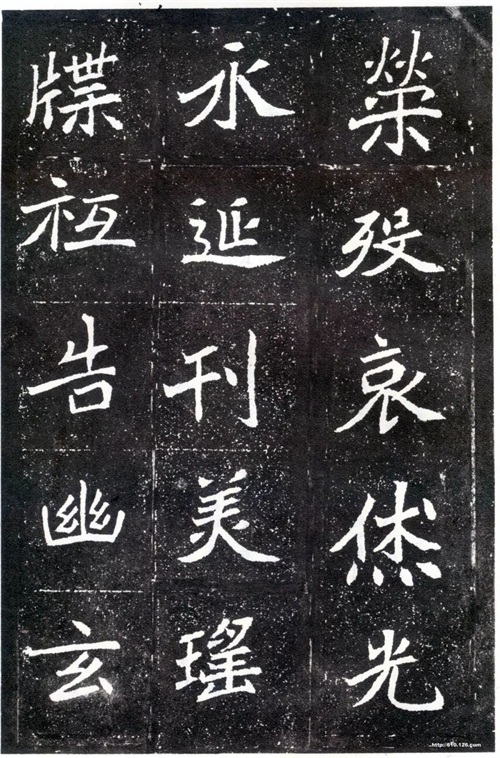 榮殁哀烋光
永延刊美瑤
牒祗告幽玄
http://610.126.com